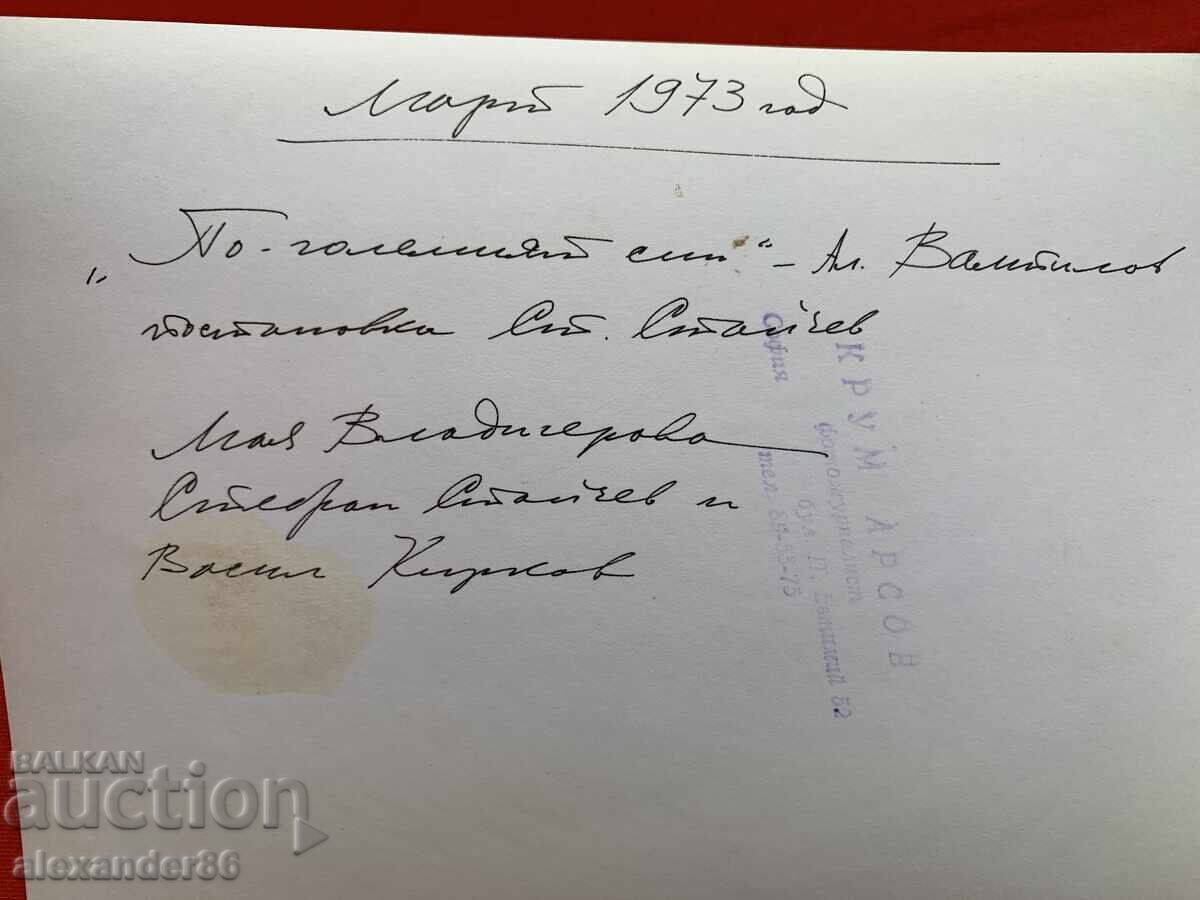 Март 1973 год
„По-големият син“ – Ал. Вампилов
постановка Ст. Стайчев
Мая Владигерова
Стефан Стайчев и
Васил Кирков
КРУМ АРСОВ
фотожурналист
бул. П. Евтимий 52
София тел. 89-53-75
BALKAN
auction
alexander86